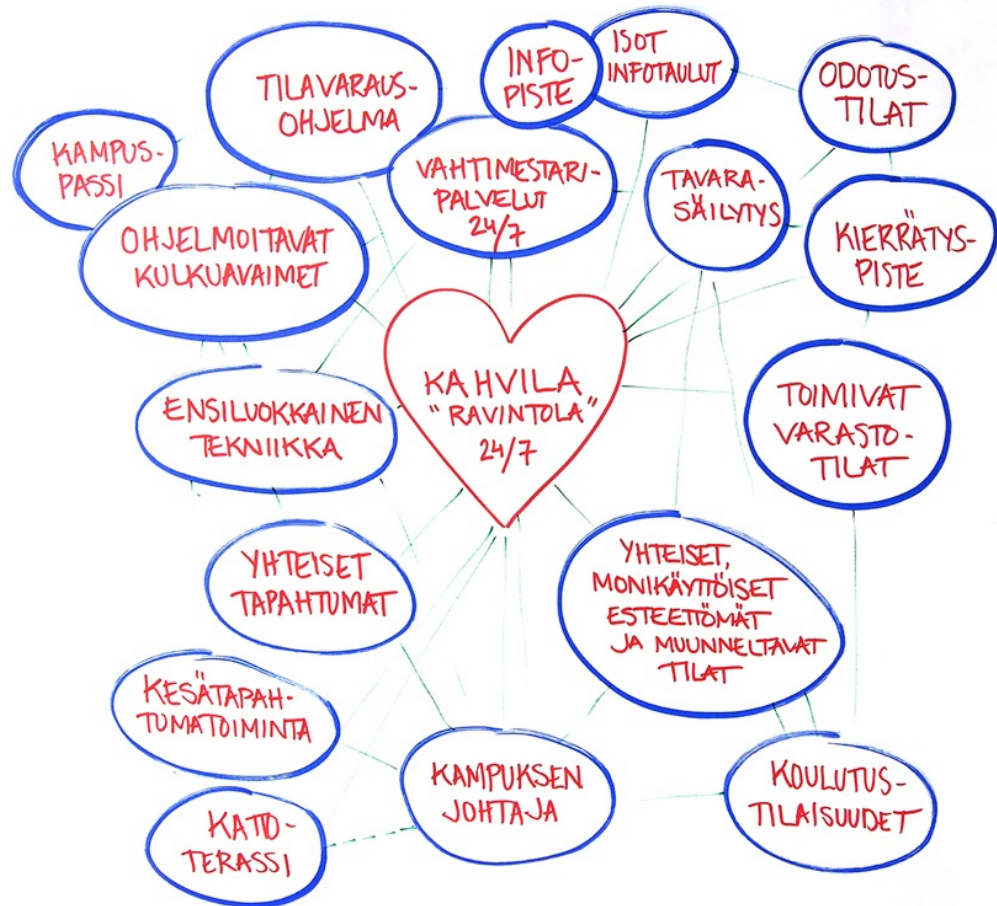 TILAVARAUS-
OHJELMA
INFO-
PISTE
ISOT
INFOTAULUT
ODOTUS-
TILAT
KAMPUS-
PASSI
VAHTIMESTARI-
PALVELUT
24/7
TAVARA-
SÄILYTYS
KIERRÄTYS-
PISTE
OHJELMOITAVAT
KULKUAVAIMET
KAHVILA
"RAVINTOLA"
24/7
TOIMIVAT
VARASTO-
TILAT
ENSILUOKKAINEN
TEKNIIKKA
YHTEISET
TAPAHTUMAT
YHTEISET,
MONIKÄYTTÖISET
ESTEETTÖMÄT
JA MUUNNELTAVAT
TILAT
KESÄTAPAH-
TUMATOIMINTA
KAMPUKSEN
JOHTAJA
KOULUTUS-
TILAISUUDET
KATTO-
TERASSI